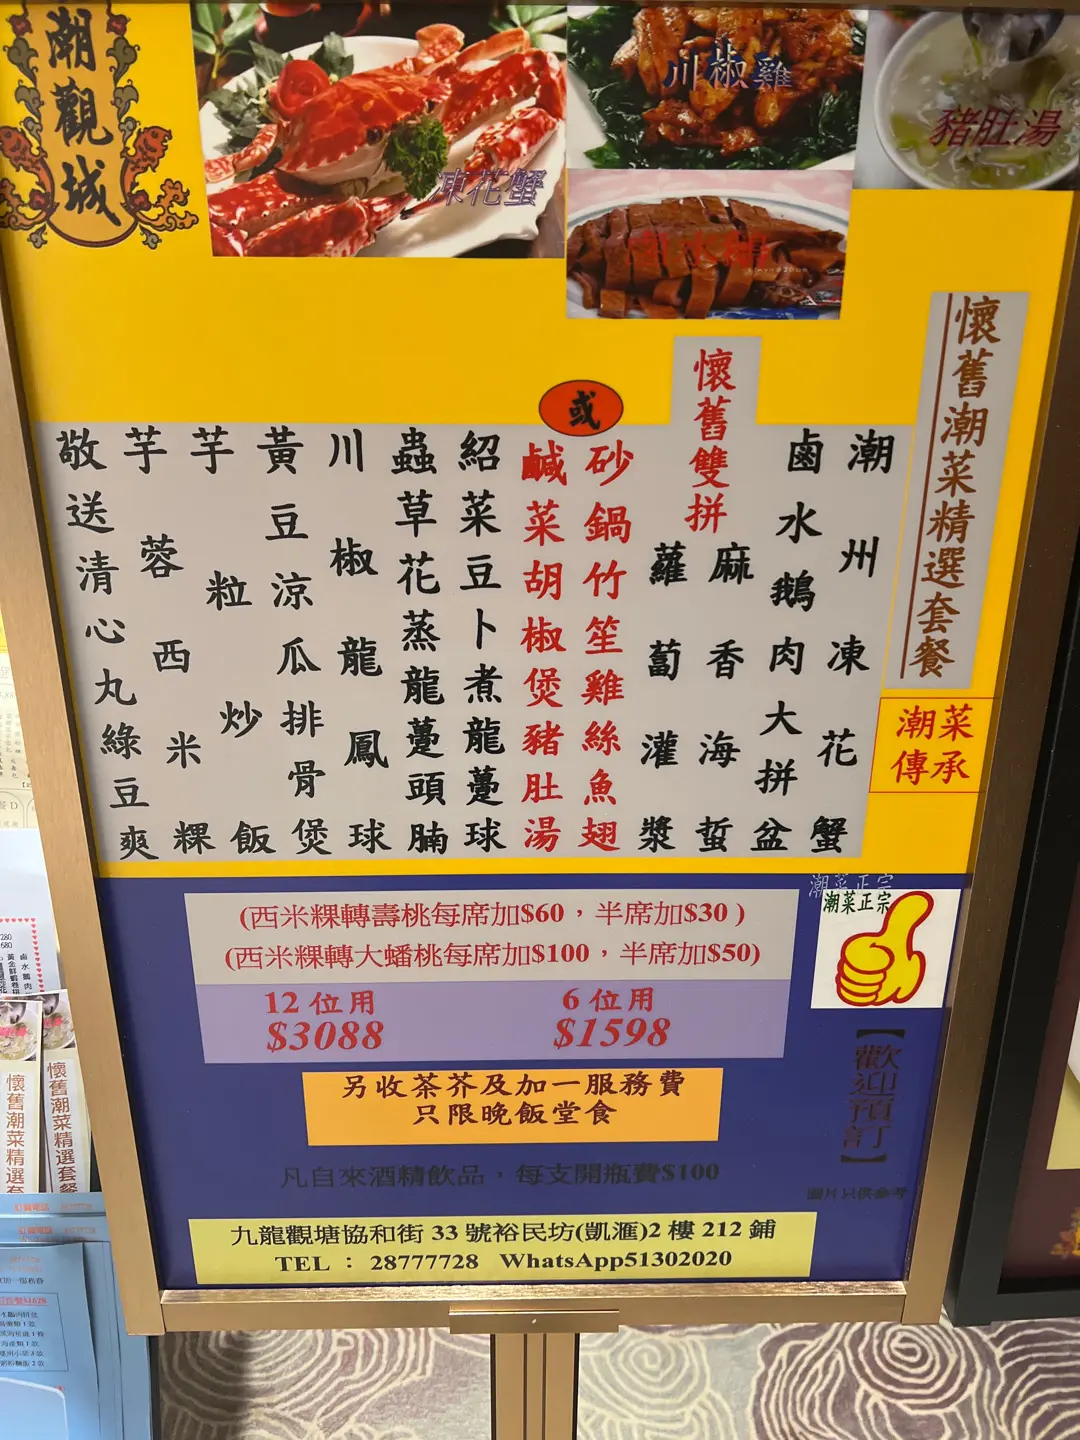 潮觀城
凍花蟹
川椒雞
豬肚湯
懷舊潮菜精選套餐
潮菜
傳承
潮州凍花蟹
鹵水鵝肉大拼盆
懷舊雙拼
麻香海蜇
蘿蔔灌漿
砂鍋竹笙雞絲魚翅
或
鹹菜胡椒煲豬肚湯
紹菜豆卜煮龍躉球
蟲草花蒸龍躉頭腩
川椒龍鳳球
黃豆涼瓜排骨煲
芋粒炒飯
芋蓉西米粿
敬送清心丸綠豆爽
(西米粿轉壽桃每席加$60，半席加$30)
(西米粿轉大蟠桃每席加$100，半席加$50)
12位用
$3088
6位用
$1598
另收茶芥及加一服務費
只限晚飯堂食
凡自來酒精飲品，每支開瓶費$100
潮菜正宗
潮菜正宗
【歡迎預訂】
圖片只供參考
九龍觀塘協和街 33 號裕民坊(凱滙)2 樓 212 鋪
TEL ： 28777728 WhatsApp51302020
懷舊潮菜精選套
懷舊潮菜精選套餐